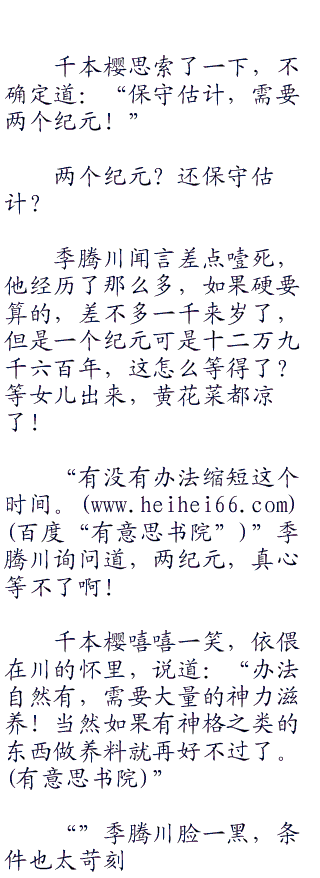 千本樱思索了一下，不
确定道：“保守估计，需要
两个纪元！”
两个纪元？还保守估
计？
季腾川闻言差点噎死，
他经历了那么多，如果硬要
算的，差不多一千来岁了，
但是一个纪元可是十二万九
千六百年，这怎么等得了？
等女儿出来，黄花菜都凉
了！
“有没有办法缩短这个
时间。(www.heihei66.com)
(百度“有意思书院”)”季
腾川询问道，两纪元，真心
等不了啊！
千本樱嘻嘻一笑，依偎
在川的怀里，说道：“办法
自然有，需要大量的神力滋
养！当然如果有神格之类的
东西做养料就再好不过了。
(有意思书院)”
“”季腾川脸一黑，条
件也太苛刻